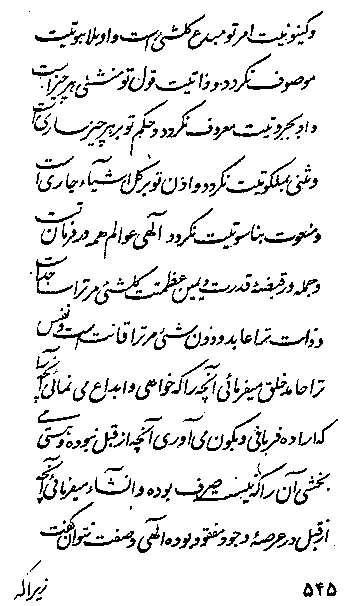 و کینونیت امر تو مبدع کلشئی است و او بلاهوتیت
موصوف نگردد و ذاتیت قول تو منشئی هر چیز است
و او بجبروتیت معروف نگردد و حکم تو بر هر چیز ساری است
و شئی بملکوتیت نگردد و اذن تو بر کل اشیاء جاری است
و منعوت بناسوتیت نگردد الهی عوالم همه در فرمان تست
و جمله در قبضهٔ قدرت و یمین عظمتت کلشئی مر ترا ساجد است
و ذات ترا عابد و دون شئی مر ترا قانت است و نفس
ترا حامد خلق میفرمائی آنچه را که خواهی و ابداع می نمائی آنچه را
که اراده فرمائی و بکون می آوری آنچه از قبل نبوده و هستی
بخشی آن را که نیست صرف بوده و انشاء میفرمائی آنچه
از قبل در عرصهٔ وجود مفقود بوده الهی وصفت نتوان گفت
زیرا که
۵۴۵